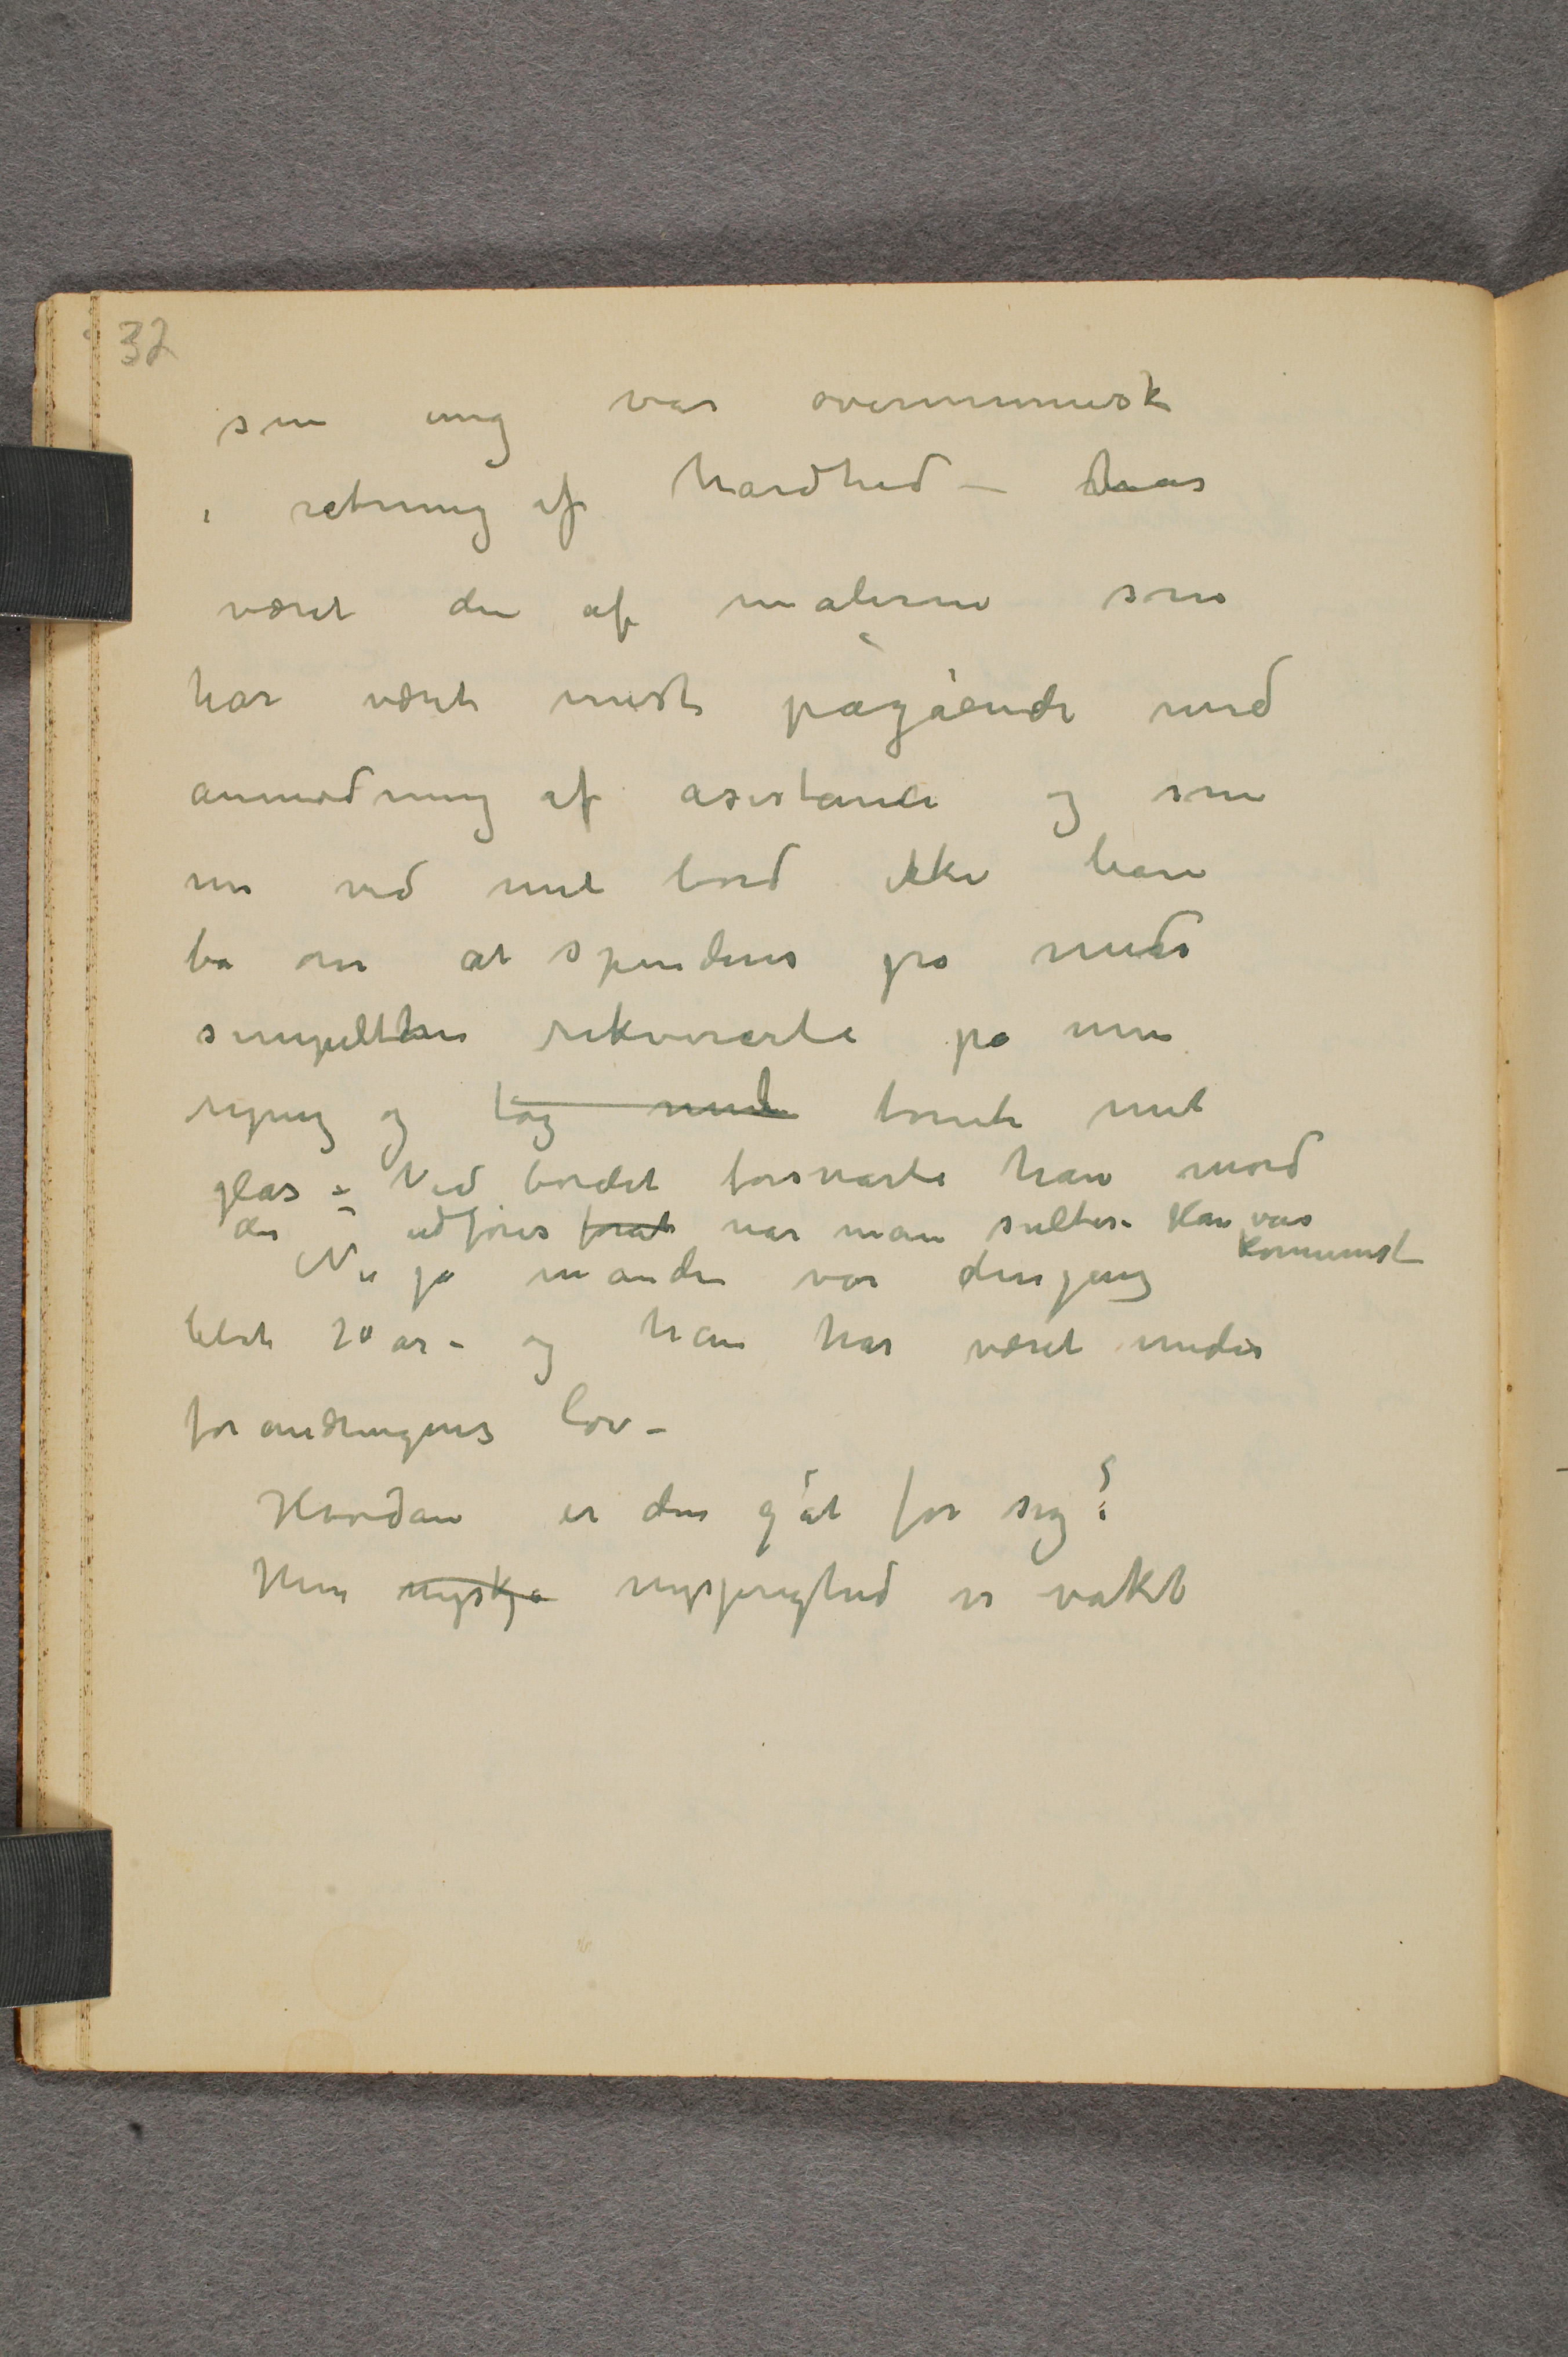 32
som ung var overmennesk
i retning af hårdhed – har
været den af malerne som
har været mest pågående med
anmodning af asistance og som
nu ved mit bord ikke bare
ba om at spenderes på men
simpelthen rekvirerte på min
regning og tog med tømte mit
glas – Ved bordet forsvarte han mord
der udføres forat når man sulter. Han var
kommunist
Nu ja manden var dengang
blet 20 år – og han har været under
forandringens lov –
Hvordan er den gåt for sig?
Min nyskj nysjerighed er vakt